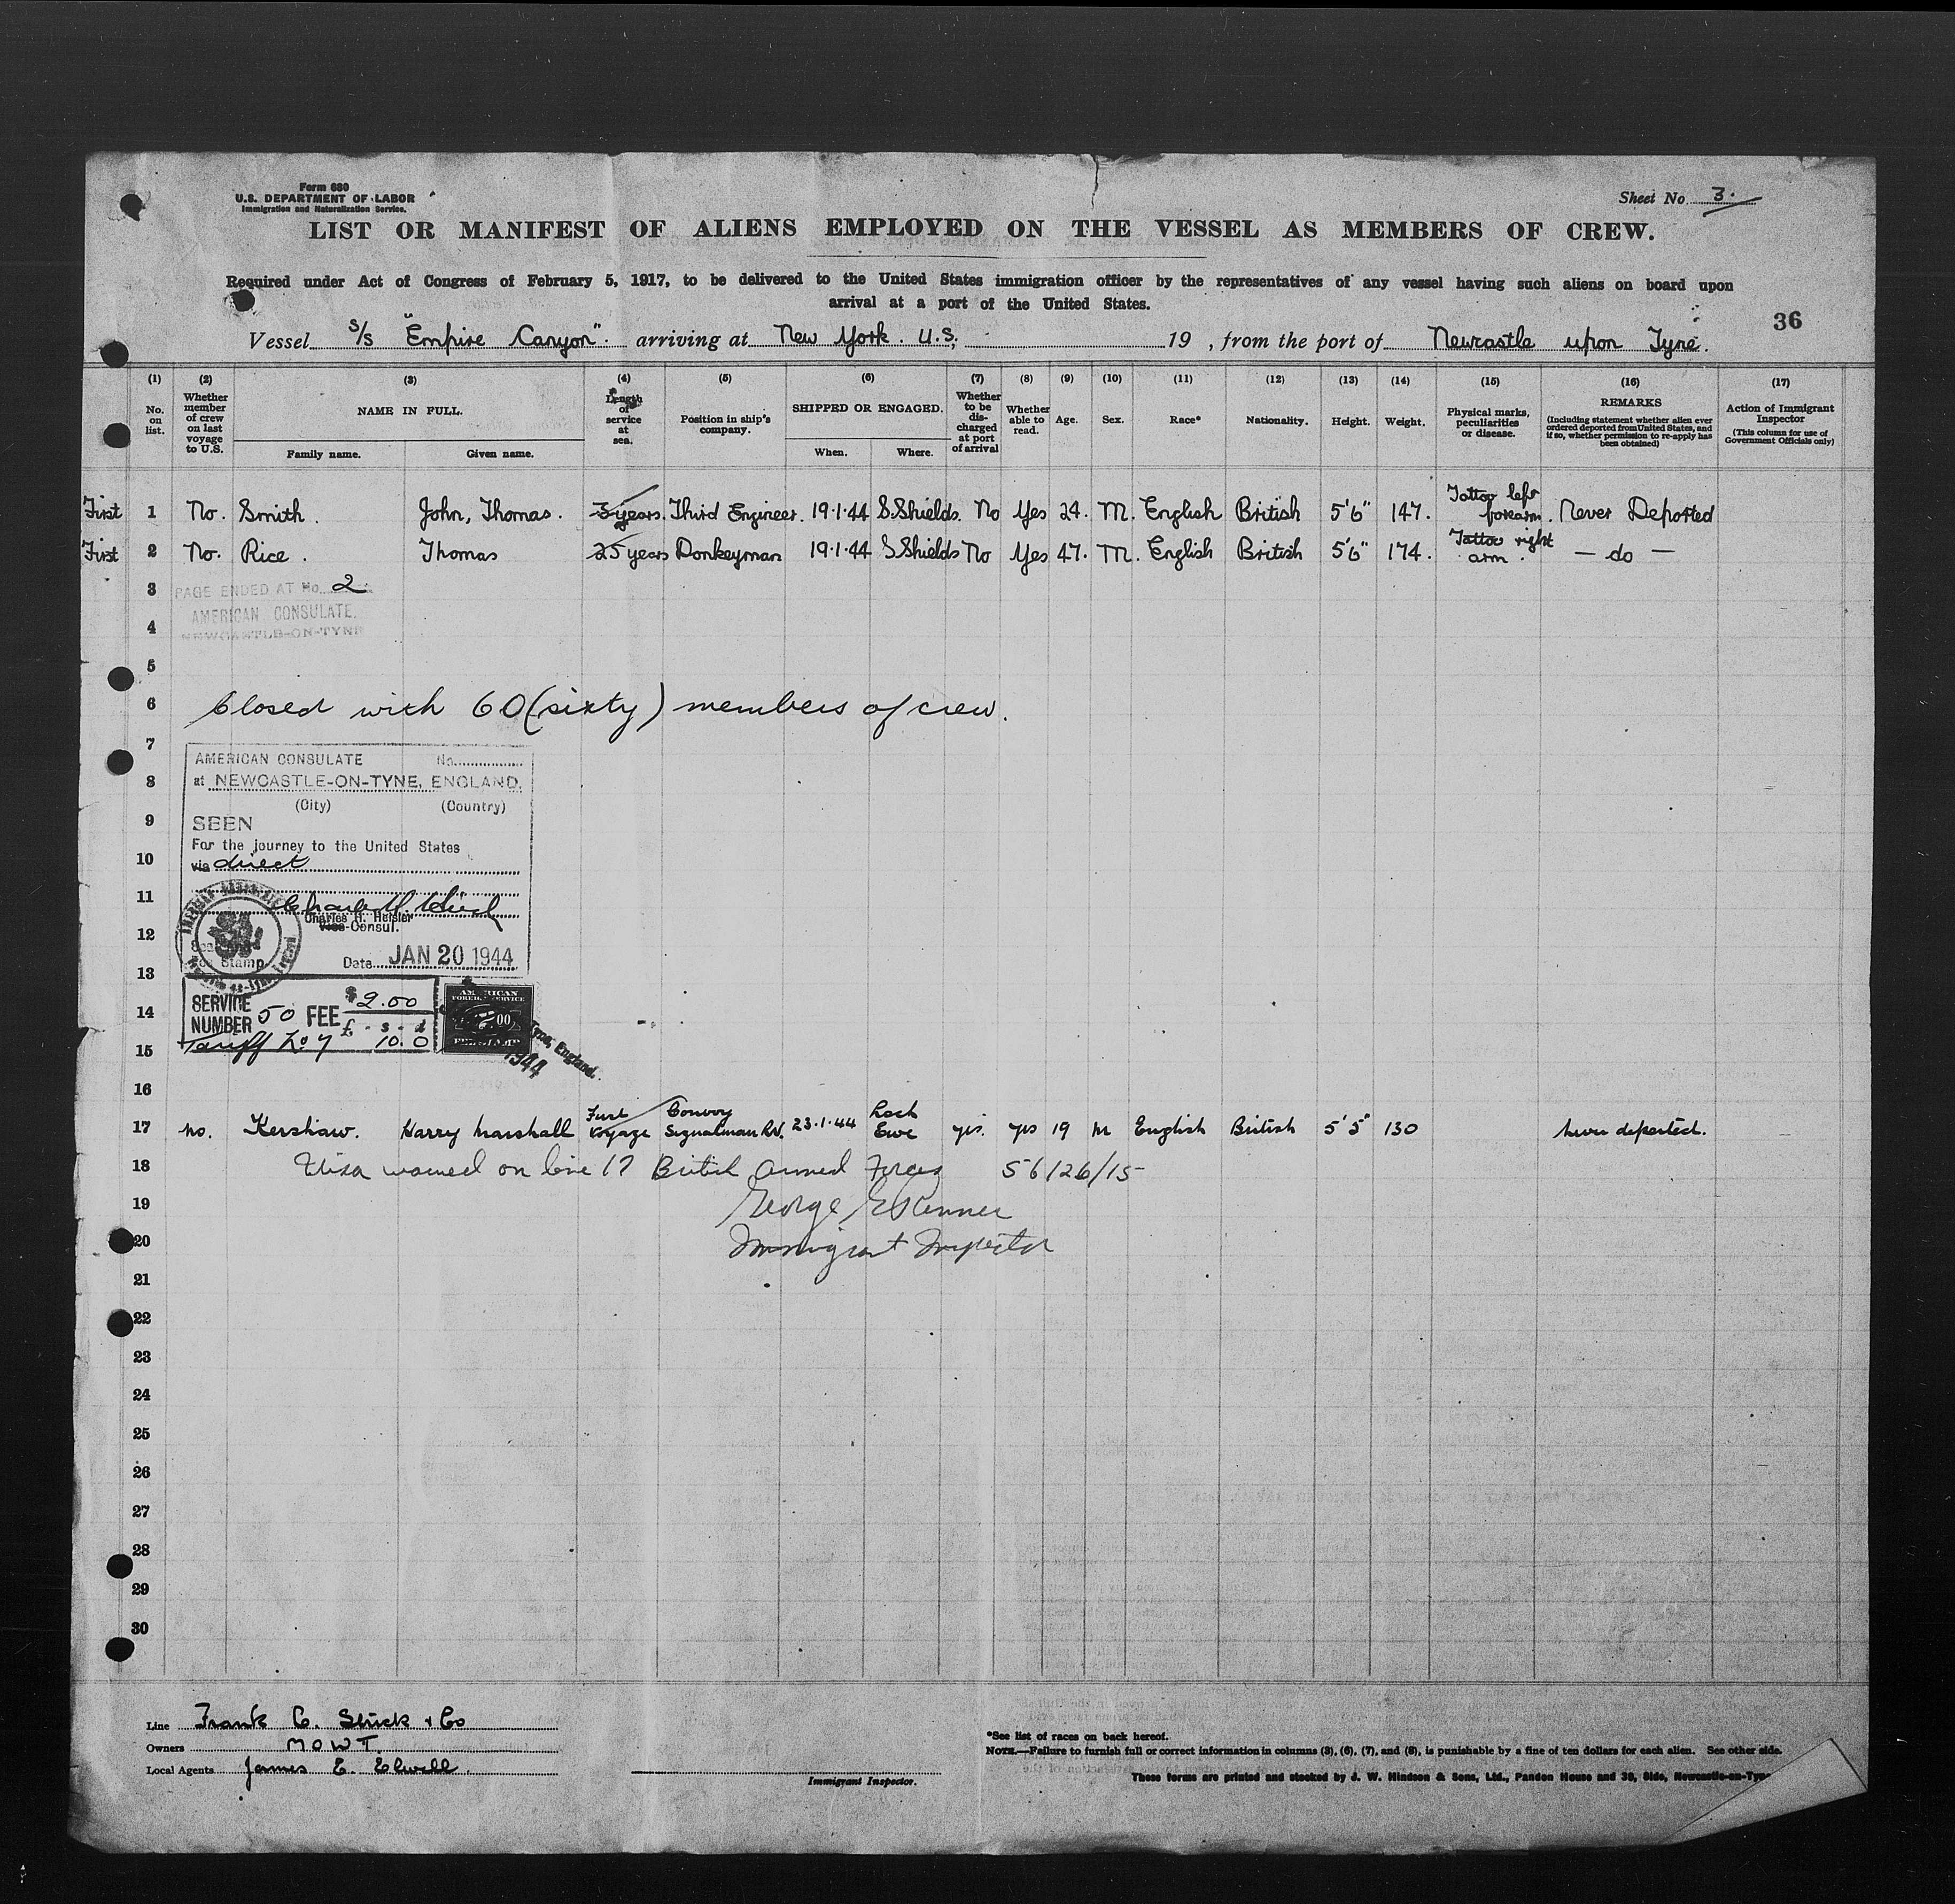 Form 680
U.S. DEPARTMENT OF LABOR
Immigration and Naturalization Service.
Sheet No. 3.
LIST OR MANIFEST OF ALIENS EMPLOYED ON THE VESSEL AS MEMBERS OF CREW.
Required under Act of Congress of February 5, 1917, to be delivered to the United States immigration officer by the representatives of any vessel having such aliens on board upon
arrival at a port of the United States.
36
Vessel S/S "Empire Canyon". arriving at New York. U.S. 19 , from the port of Newcastle upon Tyne.
(1) (2) (3) (4) (5) (6) (7) (8) (9) (10) (11) (12) (13) (14) (15) (16) (17)
No. on list.
Whether member of crew on last voyage to U.S.
NAME IN FULL.
Family name. Given name.
Length of service at sea.
Position in ship's company.
SHIPPED OR ENGAGED.
When. Where.
Whether to be discharged at port of arrival
Whether able to read.
Age.
Sex.
Race*
Nationality.
Height.
Weight.
Physical marks, peculiarities or disease.
REMARKS
(Including statement whether alien ever ordered deported from United States, and if so, whether permission to re-apply has been obtained)
Action of Immigrant Inspector
(This column for use of Government Officials only)
First 1 No. Smith. John, Thomas. 3 years. Third Engineer. 19.1.44 S.Shields. No Yes 24. M. English British 5'6" 147. Tattoo left forearm. Never Deported
First 2 No. Rice. Thomas 25 years Donkeyman 19.1.44 S Shields No Yes 47. M. English British 5'6" 174. Tattoo right arm. — do —
3 PAGE ENDED AT No. 2
AMERICAN CONSULATE.
4 NEWCASTLE-ON-TYNE
5
6 Closed with 60 (sixty) members of crew.
7
AMERICAN CONSULATE No.
8 at NEWCASTLE-ON-TYNE, ENGLAND.
(City) (Country)
9 SEEN
For the journey to the United States
10 via direct
11
Charles H. Heisler
Vice-Consul.
12
Stamp Date JAN 20 1944
13
SERVICE NUMBER 50 FEE $2.00
£ - s - d
14
Tariff No 7 10.0
AMERICAN
FOREIGN SERVICE
Tyne, England.
1944
15
16
17 no. Kershaw. Harry Marshall First Voyage Convoy Signalman R.N. 23.1.44 Loch Ewe yes. yes 19 M English British 5'5" 130 Never deported.
18 Visa waived on line 17 British Armed Forces 56/26/15
19 George
20 Immigrant Inspector
21
22
23
24
25
26
27
28
29
30
Line Frank C. Strick & Co
Owners M O W T.
Local Agents James E. Elwell.
Immigrant Inspector.
*See list of races on back hereof.
NOTE.—Failure to furnish full or correct information in columns (3), (6), (7), and (8), is punishable by a fine of ten dollars for each alien. See other side.
These forms are printed and stocked by J. W. Hindson & Sons, Ltd., Pandon House and 38, Side, Newcastle-on-Tyne